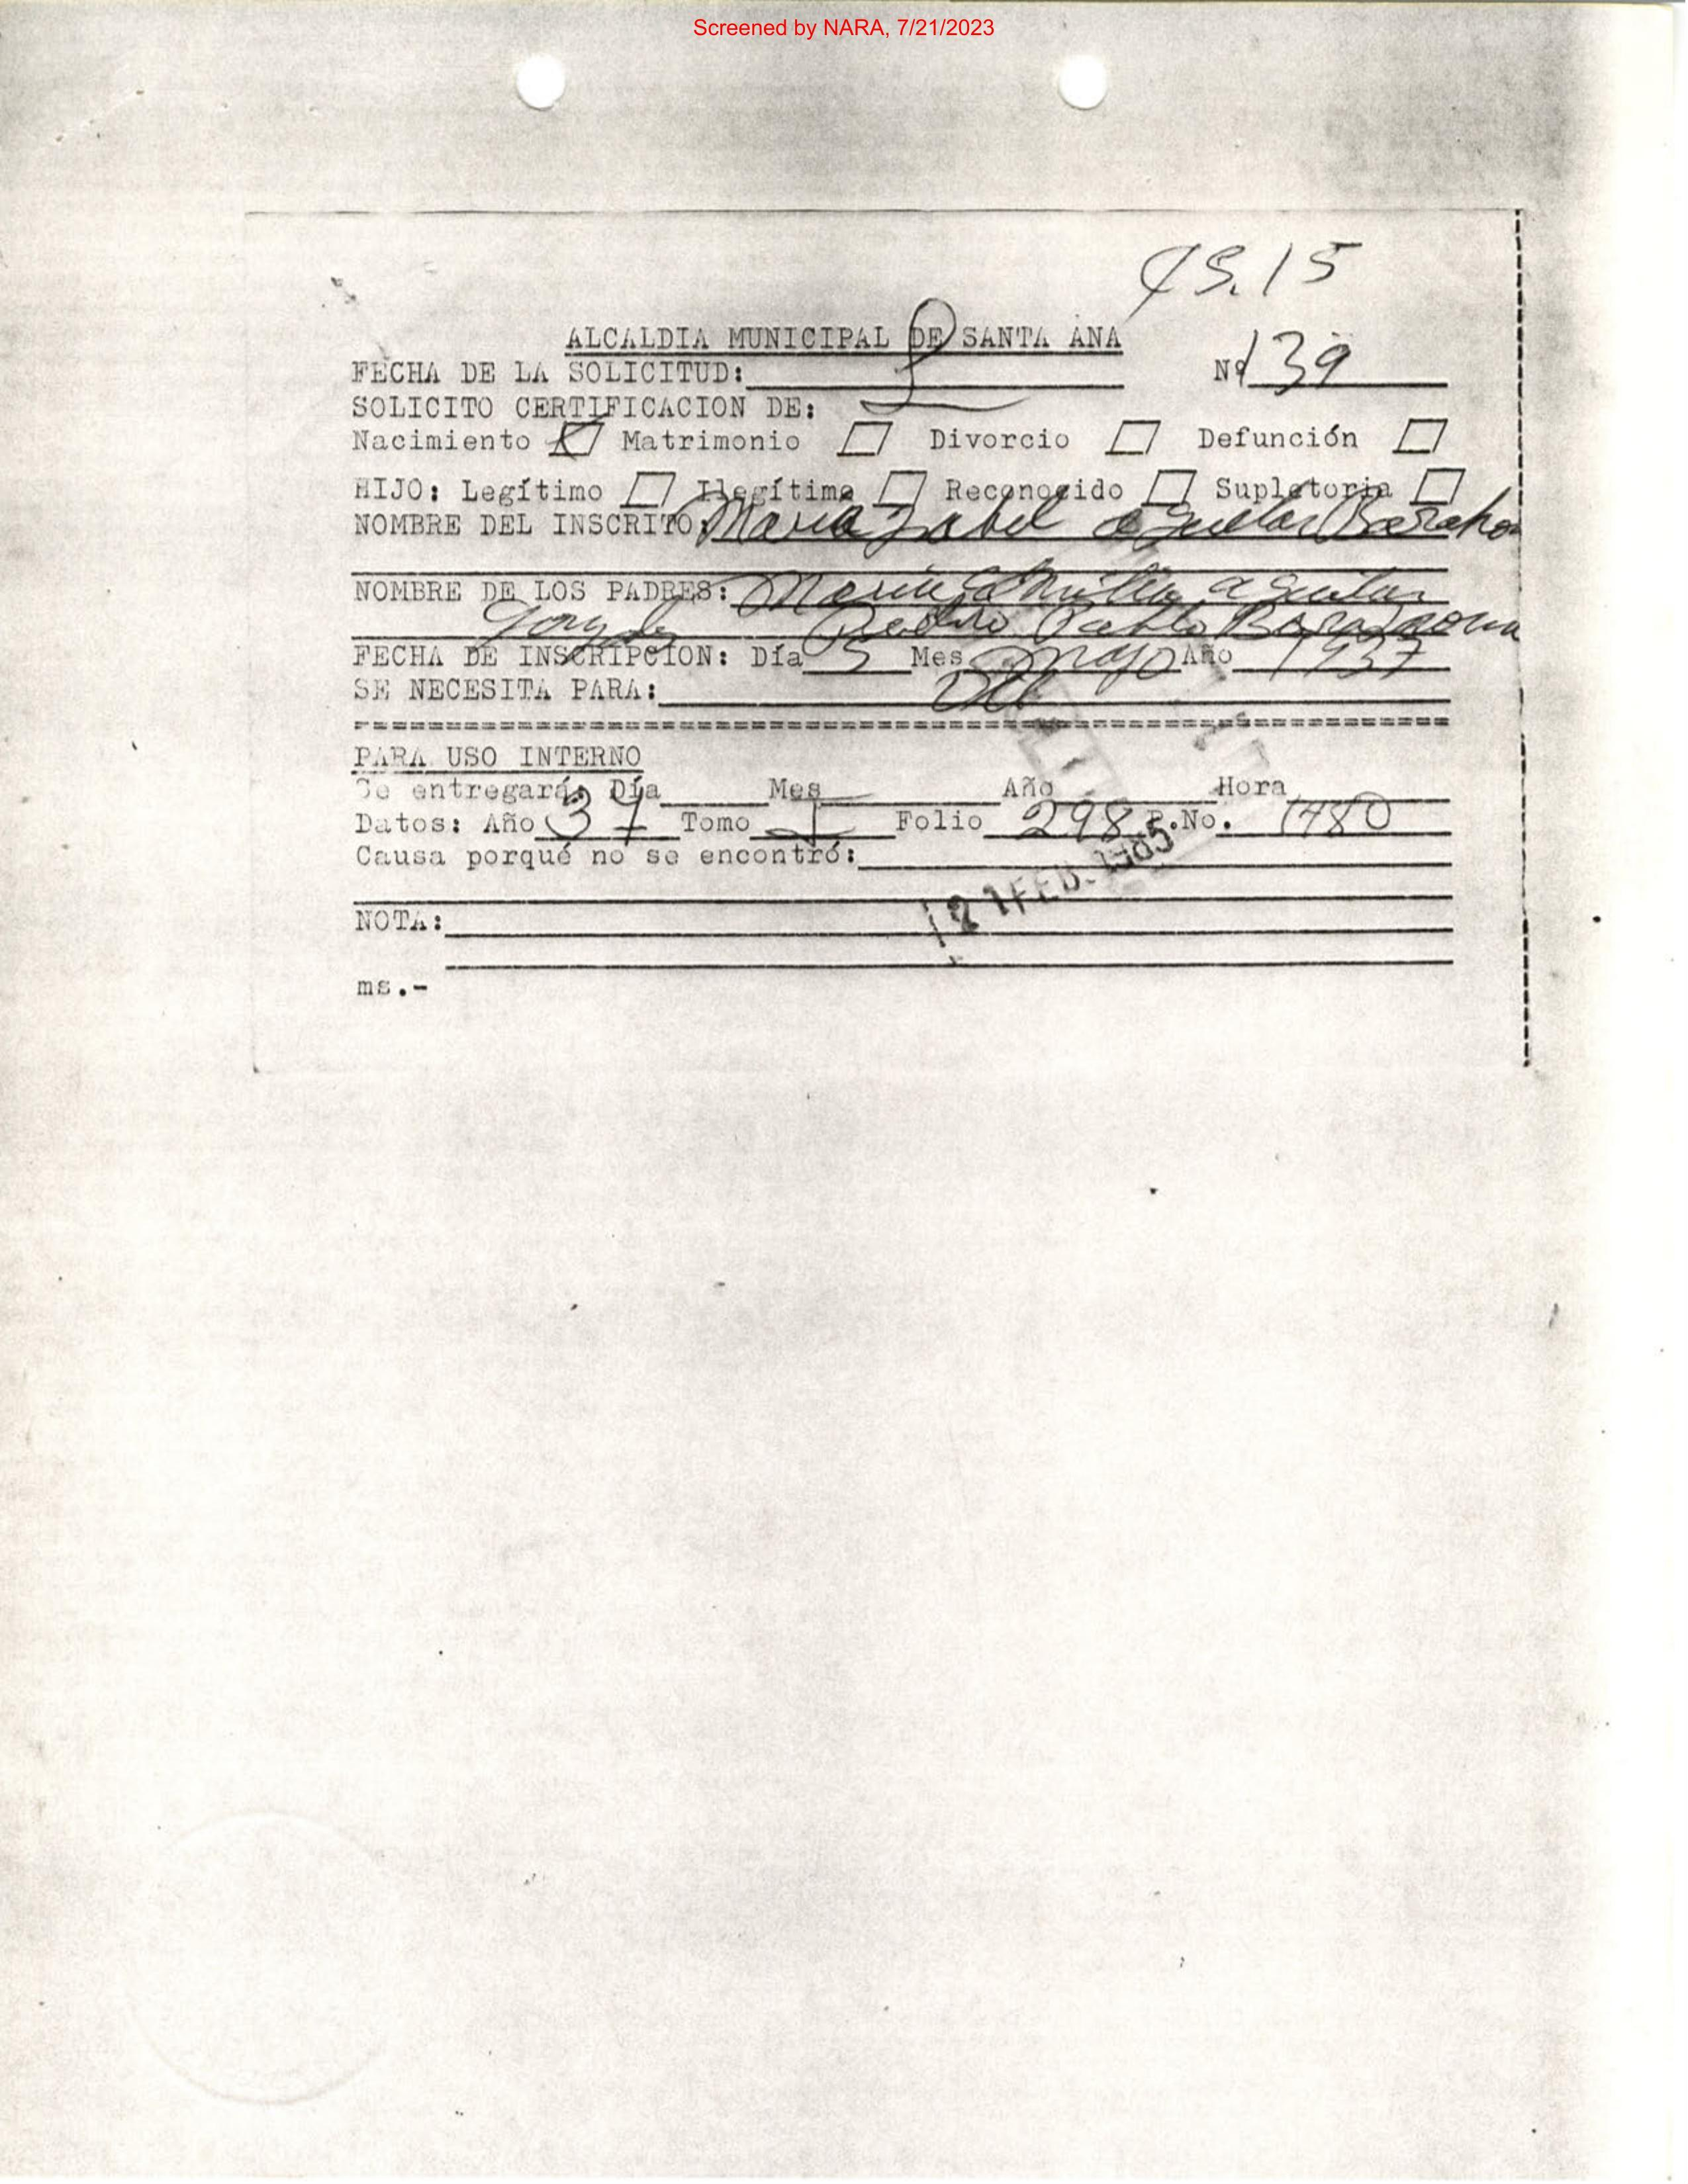 Screened by NARA, 7/21/2023
¢5.15
ALCALDIA MUNICIPAL DE SANTA ANA
FECHA DE LA SOLICITUD: Nº 139
SOLICITO CERTIFICACION DE:
Nacimiento Matrimonio Divorcio Defunción
HIJO: Legítimo Ilegítimo Reconocido Supletoria
NOMBRE DEL INSCRITO: Maria Isabel Aguilar Baraho
NOMBRE DE LOS PADRES: Maria Aguilar
Pedro Pablo Barahona
FECHA DE INSCRIPCION: Día 5 Mes Mayo Año 1937
SE NECESITA PARA:
PARA USO INTERNO
Se entregará: Día Mes Año Hora
Datos: Año 37 Tomo I Folio 298 P.No. 1480
Causa porqué no se encontró:
21 FEB. 1985
NOTA:
ms.-